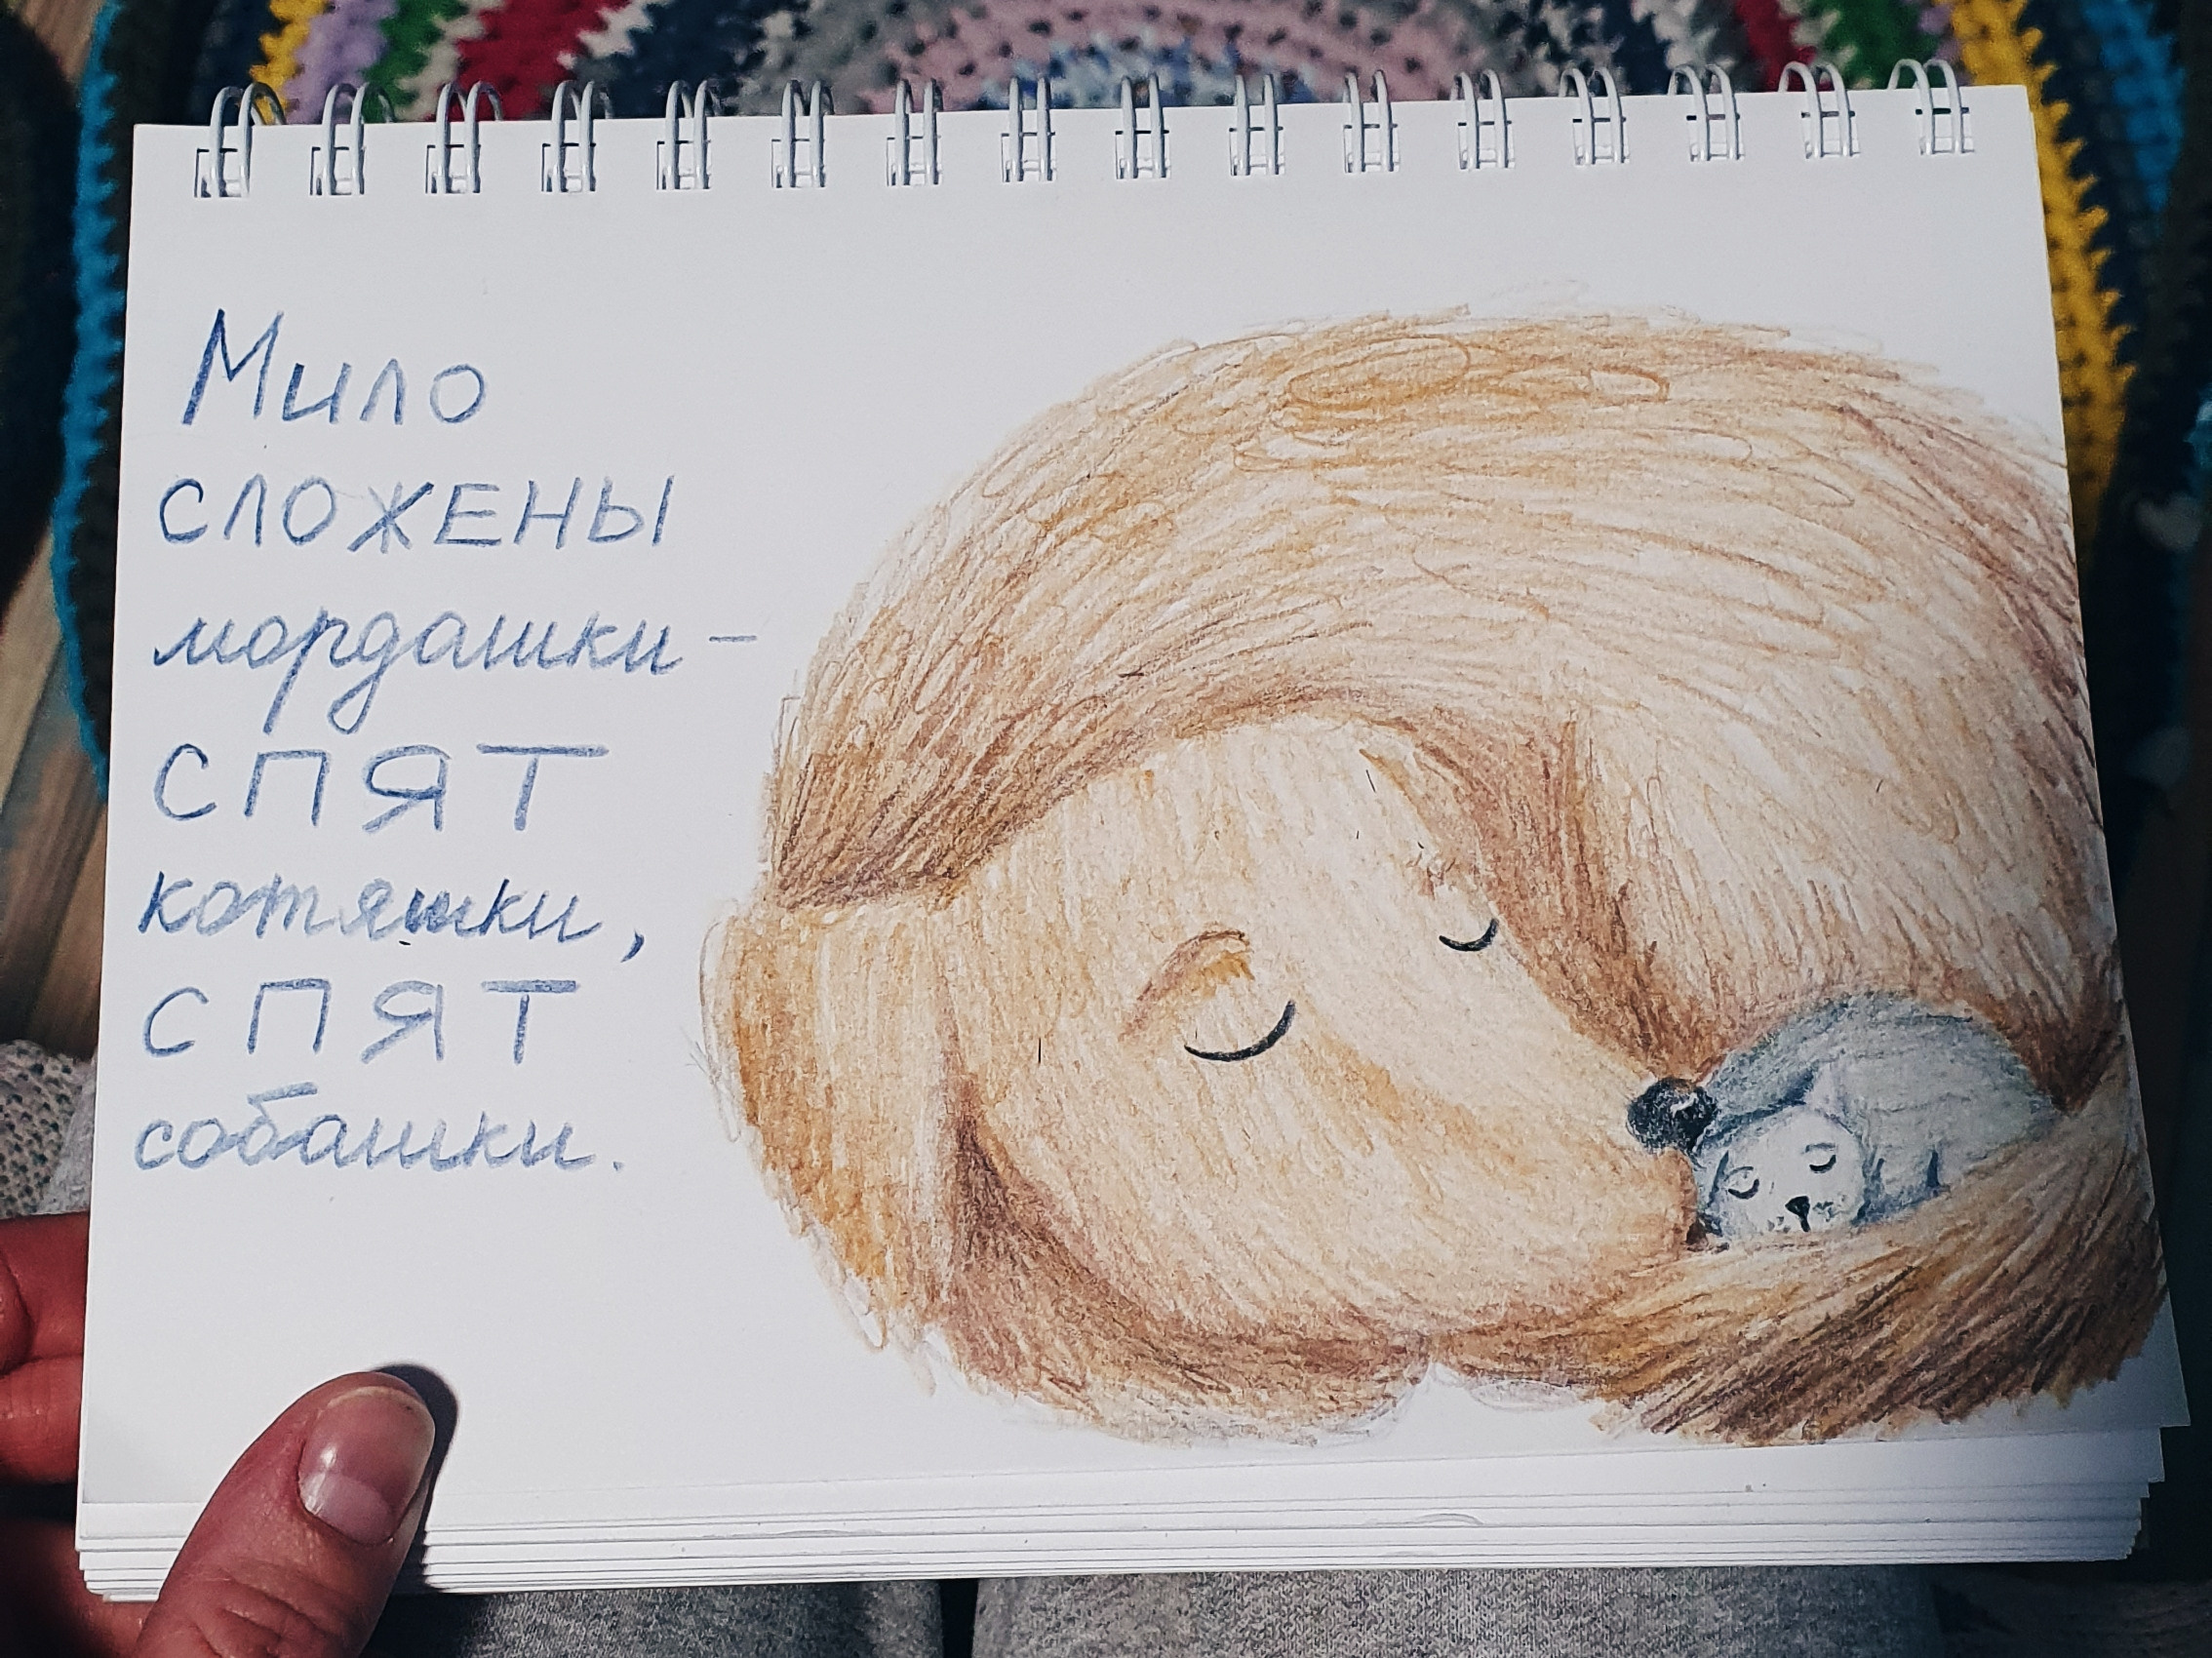 Мило
сложены
мордашки –
спят
котяшки,
спят
собашки.